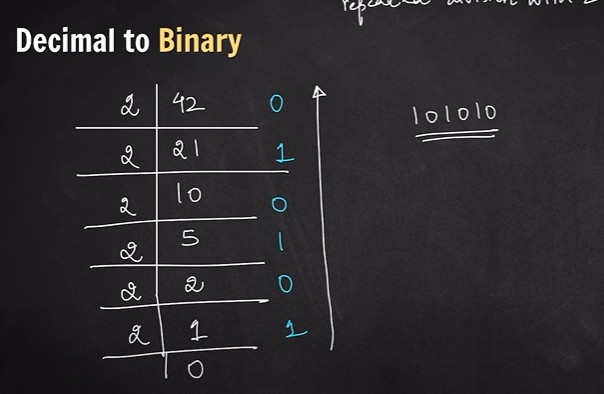 repeated division with 2
Decimal to Binary
2 42 0
101010
2 21 1
2 10 0
2 5 1
2 2 0
2 1 1
0